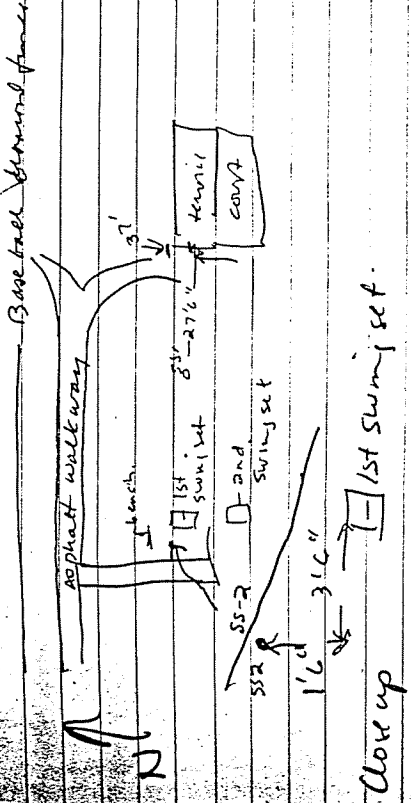 Baseball diamond fence
asphalt walkway
37'
tennis
court
bench
1st
swing set
85' - 27'6"
2nd
swing set
SS-2
SS2
1'6"
3'6"
1st swing set.
Close up
N